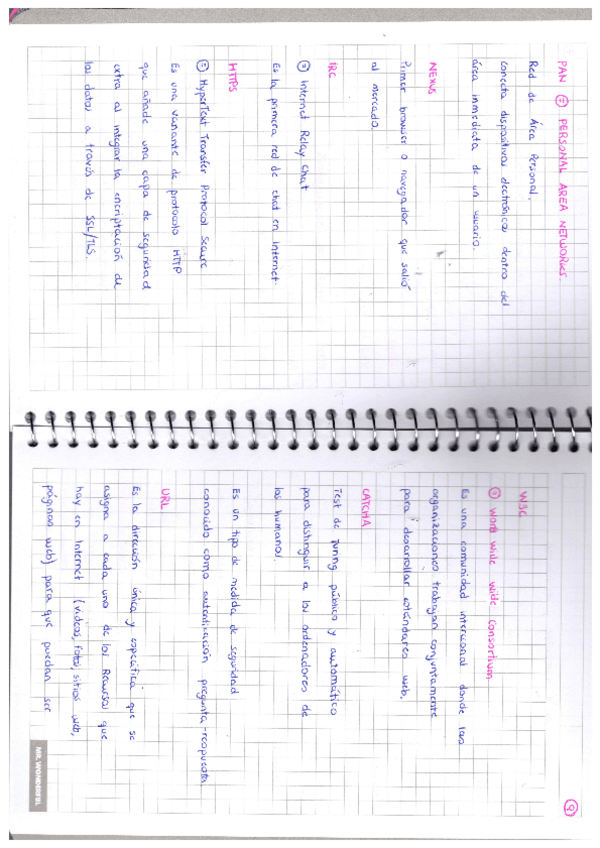 PAN = PERSONAL AREA NETWORKS.
Red de Área Personal.
Conecta dispositivos electrónicos dentro del
área inmediata de un usuario.
NEXUS
Primer browser o navegador que salió
al mercado.
IRC
Internet Relay Chat
Es la primera red de chat en Internet
HTTPS
= HyperText Transfer Protocol Secure
Es una variante de protocolo HTTP
que añade una capa de seguridad
extra al integrar la encriptación de
los datos a través de SSL/TLS.
9
W3C
word wide wide consortium
Es una comunidad
donde las
organizaciones trabajan conjuntamente
para desarrollar estándares web.
CATCHA
Test de Turing público y automático
para distinguir a los ordenadores de
los humanos.
Es un tipo de medida de seguridad
conocido como autenticación pregunta-respuesta.
URL
Es la dirección única y específica que se
asigna a cada uno de los Recursos que
hay en Internet (videos, fotos, sitios web,
páginas web) para que puedan ser
MR. WONDERFUL